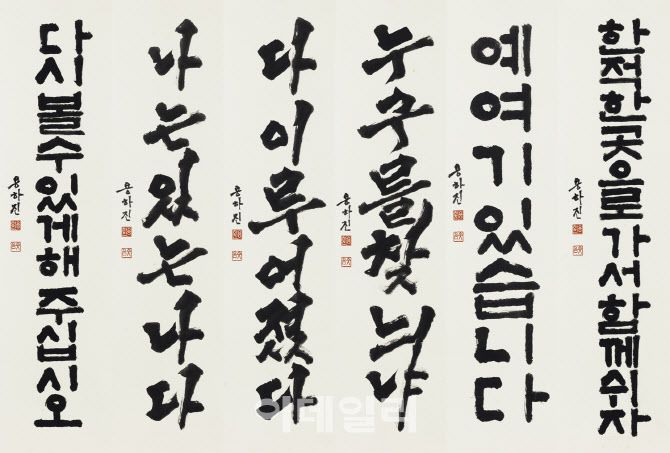 한적한 곳으로 가서 함께 쉬자
용하진
예 여기 있습니다
용하진
누구를 찾느냐
용하진
다 이루어졌다
용하진
나는 있는 나다
용하진
다시 볼 수 있게 해 주십시오
용하진
이데일리